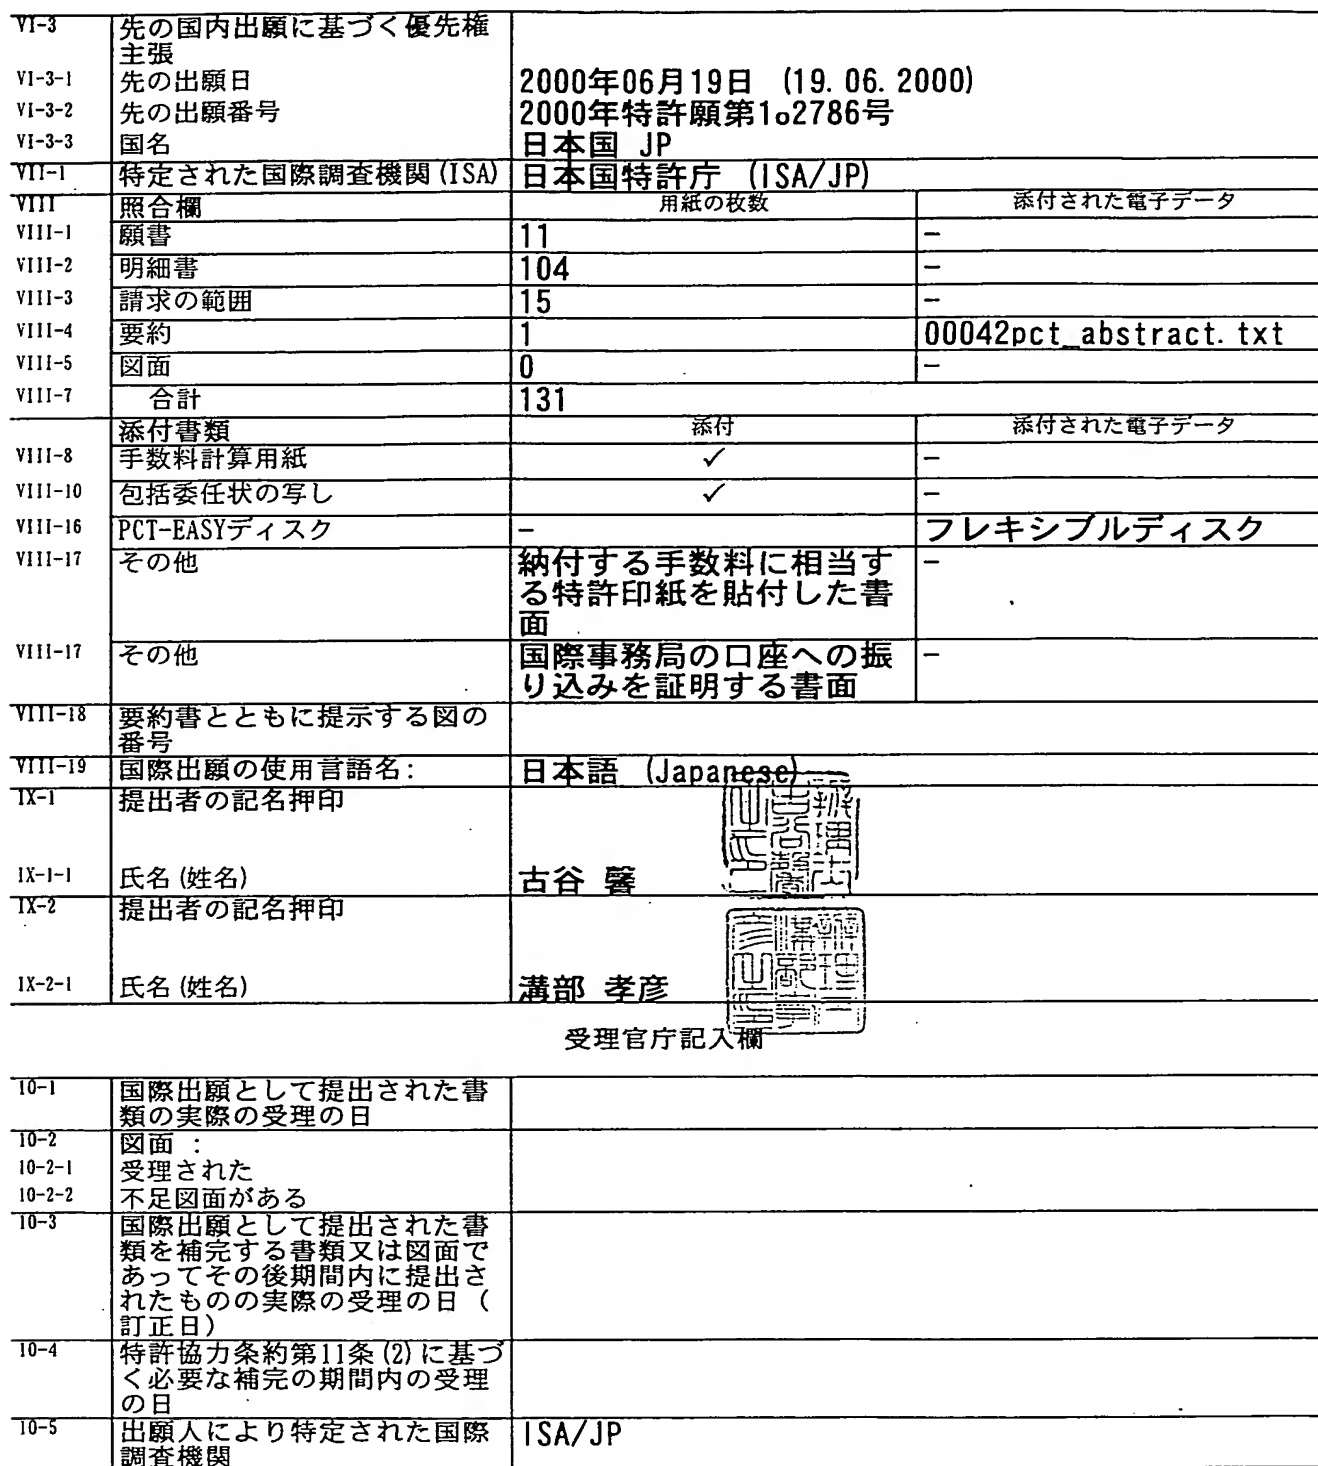 VI-3 先の国内出願に基づく優先権
主張
VI-3-1 先の出願日 2000年06月19日 (19. 06. 2000)
VI-3-2 先の出願番号 2000年特許願第1o2786号
VI-3-3 国名 日本国 JP
VII-1 特定された国際調査機関(ISA) 日本国特許庁 (ISA/JP)
VIII 照合欄 用紙の枚数 添付された電子データ
VIII-1 願書 11 -
VIII-2 明細書 104 -
VIII-3 請求の範囲 15 -
VIII-4 要約 1 00042pct_abstract. txt
VIII-5 図面 0 -
VIII-7 合計 131
添付書類 添付 添付された電子データ
VIII-8 手数料計算用紙 ✓ -
VIII-10 包括委任状の写し ✓ -
VIII-16 PCT-EASYディスク - フレキシブルディスク
VIII-17 その他 納付する手数料に相当す -
る特許印紙を貼付した書
面
VIII-17 その他 国際事務局の口座への振 -
り込みを証明する書面
VIII-18 要約書とともに提示する図の
番号
VIII-19 国際出願の使用言語名: 日本語 (Japanese)
IX-1 提出者の記名押印
IX-1-1 氏名(姓名) 古谷 馨
IX-2 提出者の記名押印
IX-2-1 氏名(姓名) 溝部 孝彦
受理官庁記入欄
10-1 国際出願として提出された書
類の実際の受理の日
10-2 図面 :
10-2-1 受理された
10-2-2 不足図面がある
10-3 国際出願として提出された書
類を補完する書類又は図面で
あってその後期間内に提出さ
れたものの実際の受理の日(
訂正日)
10-4 特許協力条約第11条(2)に基づ
く必要な補完の期間内の受理
の日
10-5 出願人により特定された国際 ISA/JP
調査機関